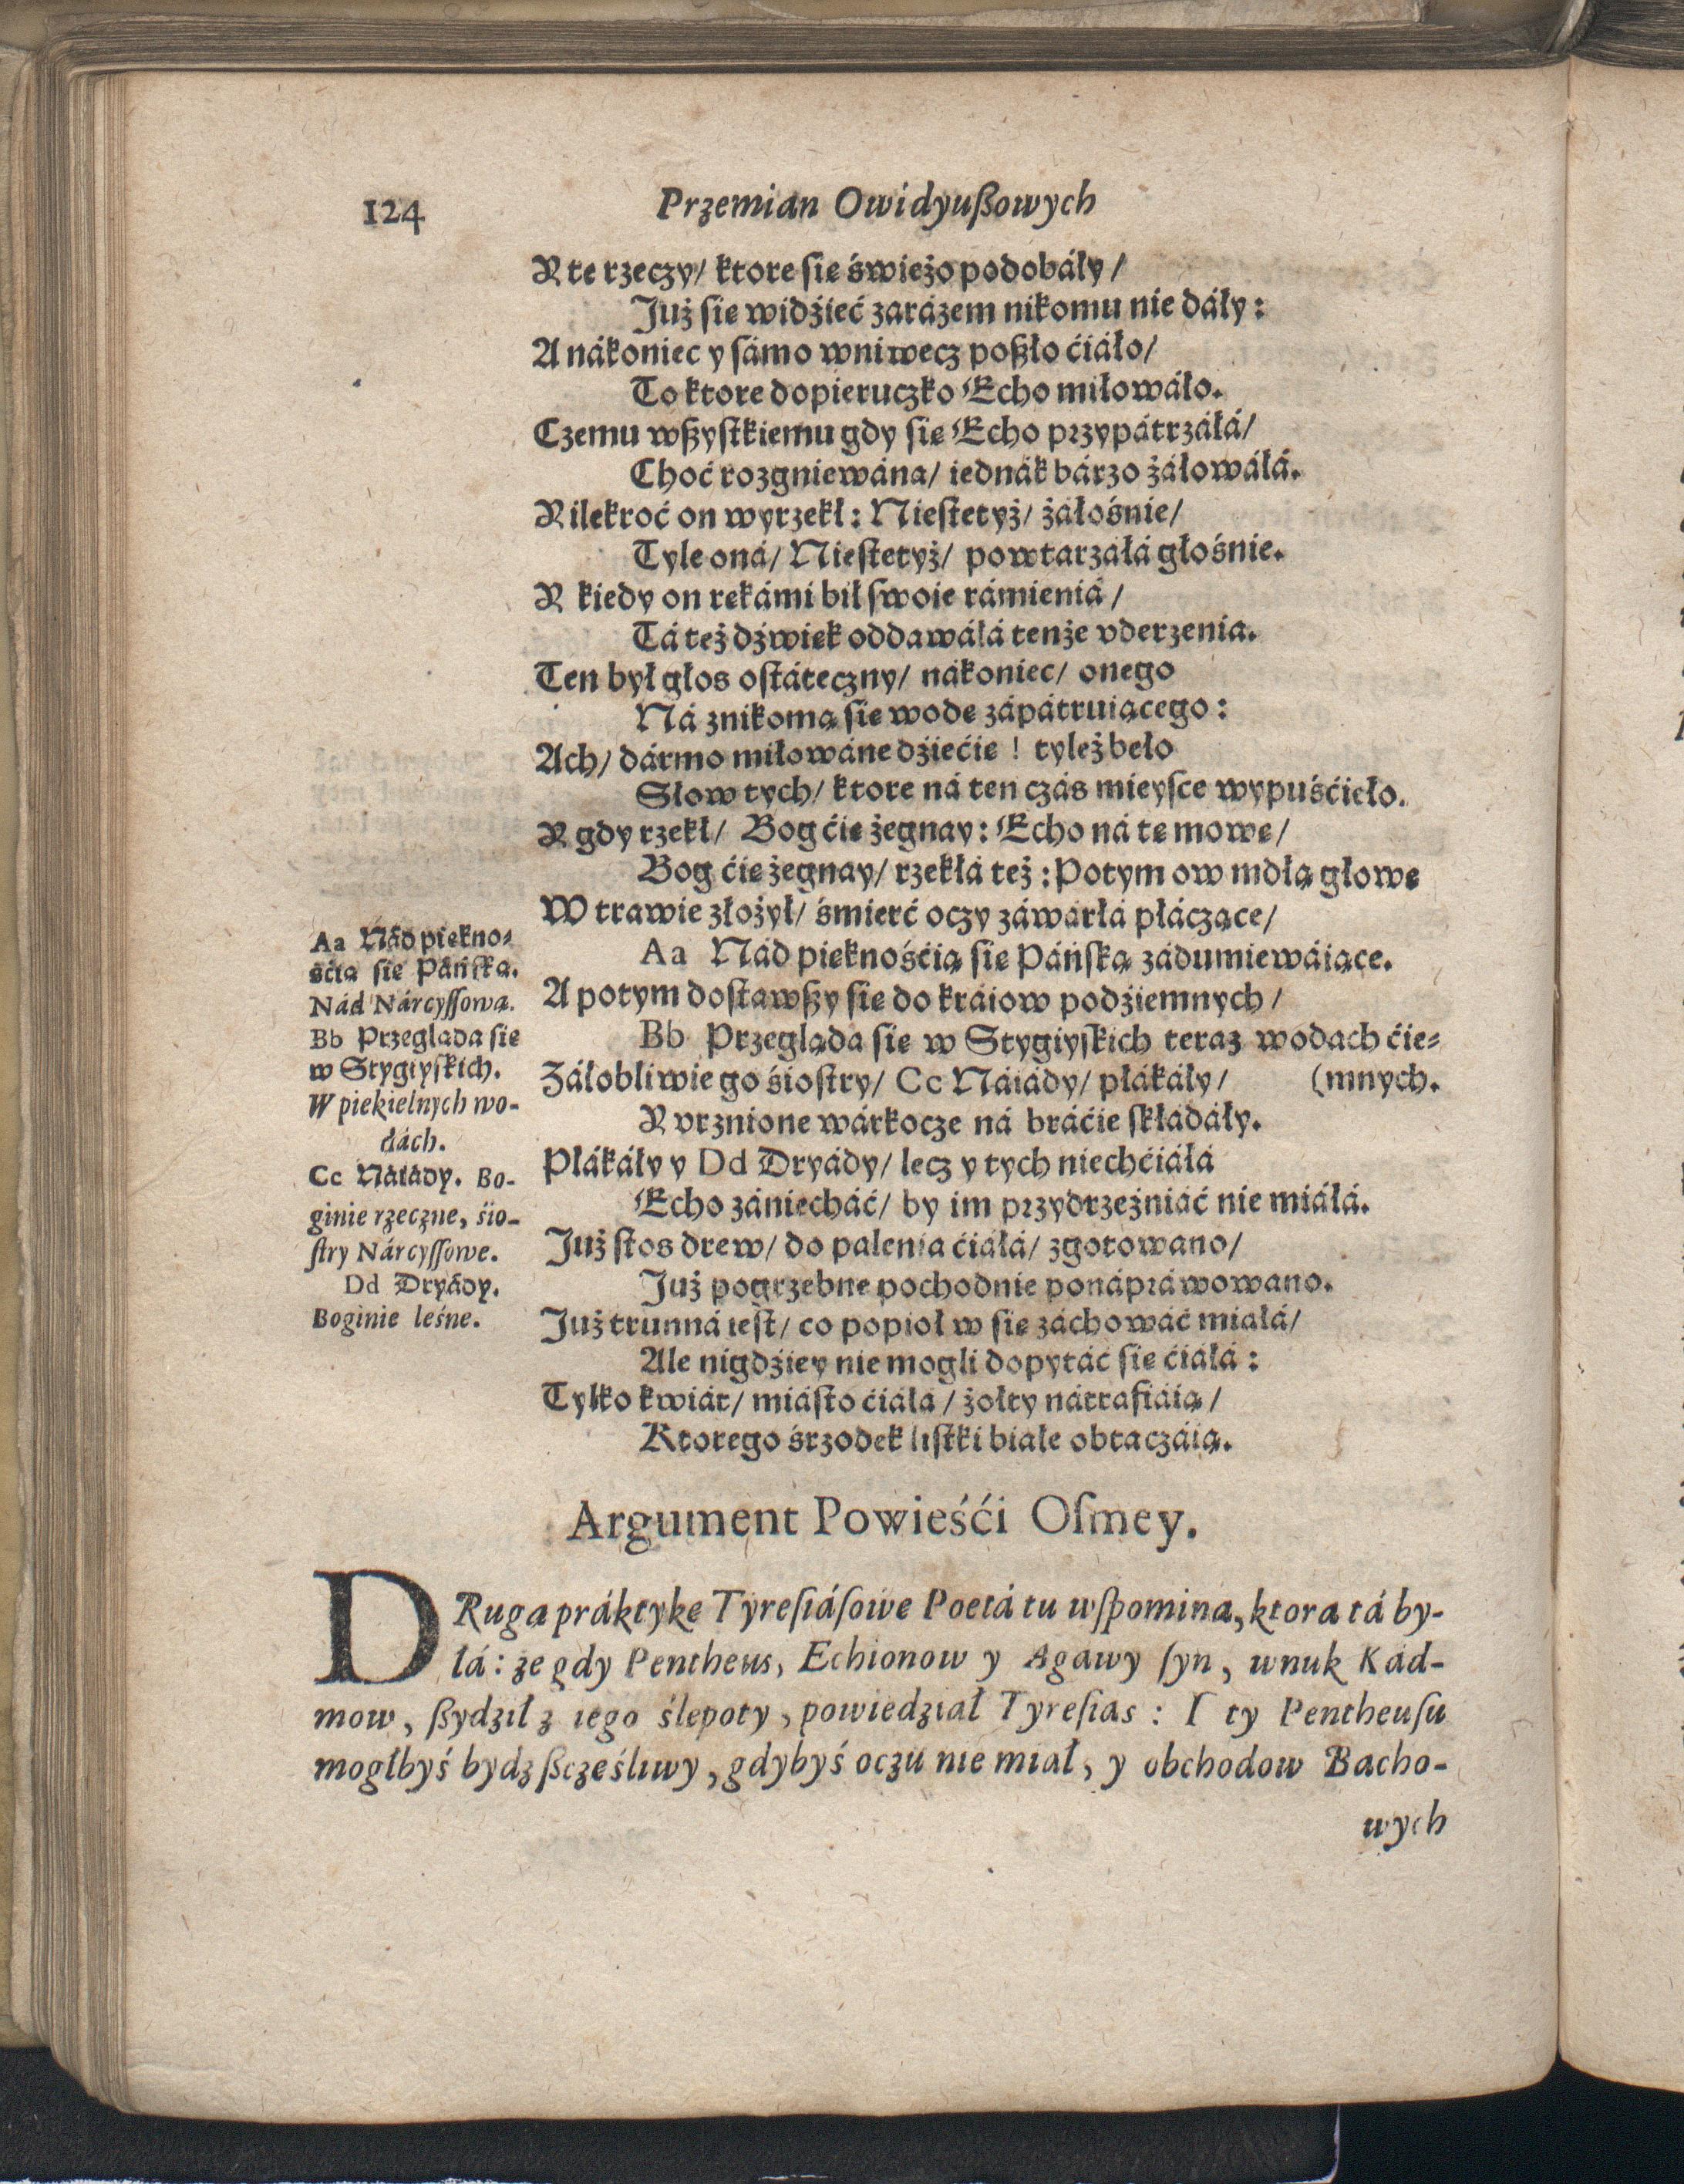 124
Przemian Owidyußowych
Y te rzeczy/ ktore ſie świeżo podobáły/
Już ſie widźieć zárázem nikomu nie dáły:
A nákoniec y ſámo wniwecz poßło ćiáło/
To ktore dopieruczko Echo miłowáło.
Czemu wßyſtkiemu gdy ſie Echo przypátrzáłá/
Choć rozgniewána/ iednák bárzo żáłowáłá.
Y ilekroć on wyrzekł: Nieſtetyż/ żáłośnie/
Tyle oná/ Nieſtetyż/ powtarzáłá głośnie.
Y kiedy on rekámi bił ſwoie rámieniá/
Tá też dźwiek oddawáłá tenże vderzenia.
Ten był głos oſtáteczny/ nákoniec/ onego
Ná znikomą ſie wode zápátruiącego:
Ach/ dármo miłowáne dźiećie! tyleż beło
Słow tych/ ktore ná ten czás mieyſce wypuśćieło.
Y gdy rzekł/ Bog ćie żegnay: Echo ná te mowe/
Bog ćie żegnay/ rzekłá też: Potym ow mdłą głowe
W trawie złożył/ śmierć oczy záwárłá płáczące/
Aa Nád pieknośćią ſie Páńſką zádumiewáiące.
A potym doſtawßy ſie do kráiow podźiemnych/
Bb Przegląda ſie w Stygiyſkich teraz wodach ćie⸗
(mnych.
Żáłobliwie go śioſtry/ Cc Náiády/ płákáły/
Y vrznione wárkocze ná bráćie ſkłádáły.
Płákáły y Dd Dryády/ lecz y tych niechćiáłá
Echo zániecháć/ by im przydrzeźniáć nie miáłá.
Już ſtos drew/ do palenia ćiáłá/ zgotowano/
Już pogrzebne pochodnie ponápráwowano.
Już trunná ieſt/ co popioł w ſie záchowáć miáłá/
Ale nigdźiey nie mogli dopytáć ſie ćiáłá:
Tylko kwiát/ miáſto ćiáłá/ żołty nátrafiáią/
Ktorego śrzodek liſtki białe obtaczáią.
Aa Nád piekno⸗
śćią ſie Páńſką.
Nád Nárcyſſową.
Bb Przegląda ſie
w Stygiyſkich.
W piekielnych wo-
dách.
Cc Náiády. Bo-
ginie rzeczne, śio-
ſtry Nárcyſſowe.
Dd Dryády.
Boginie leśne.
Argument Powieśći Oſmey.
DRugą práktyke Tyreſiáſowe Poetá tu wſpomina, ktora tá by-
łá: że gdy Pentheus, Echionow y Agawy ſyn, wnuk Kad-
mow, ßydził z iego ślepoty, powiedział Tyreſias: I ty Pentheuſu
mogłbyś bydz ßcześliwy, gdybyś oczu nie miał, y obchodow Bacho-
wych